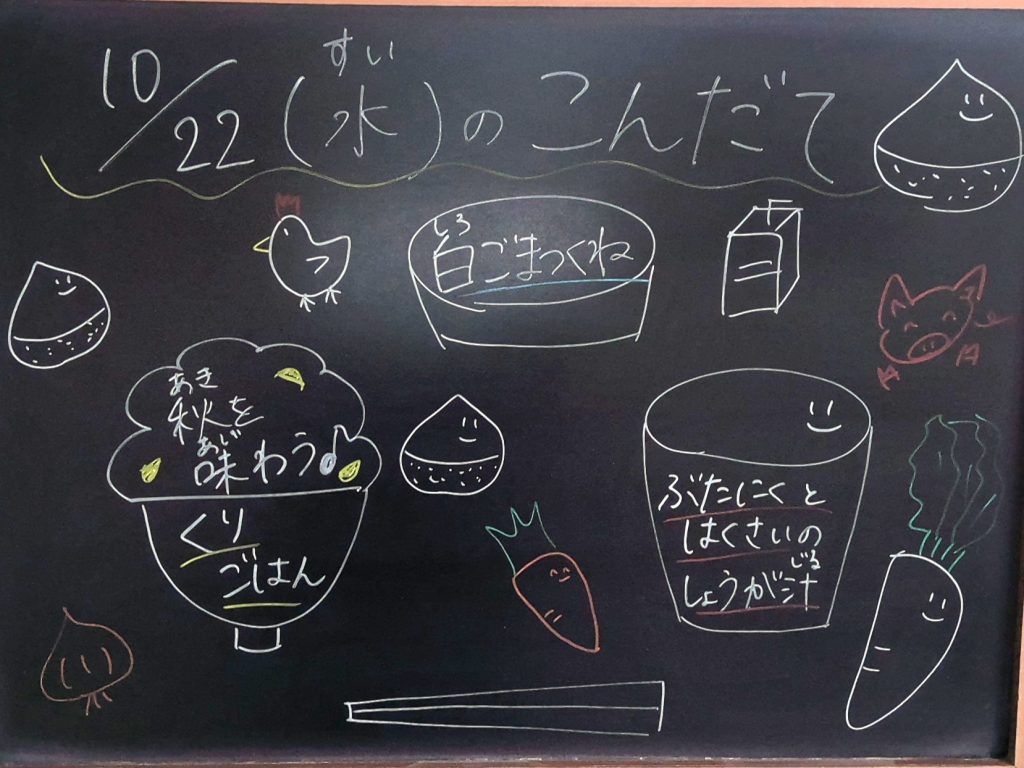 10/22(水)のこんだて
すい
白ごまつくね
しろ
秋を
あき
味わう♪
あじ
くり
ごはん
ぶたにくと
はくさいの
しょうが汁
じる